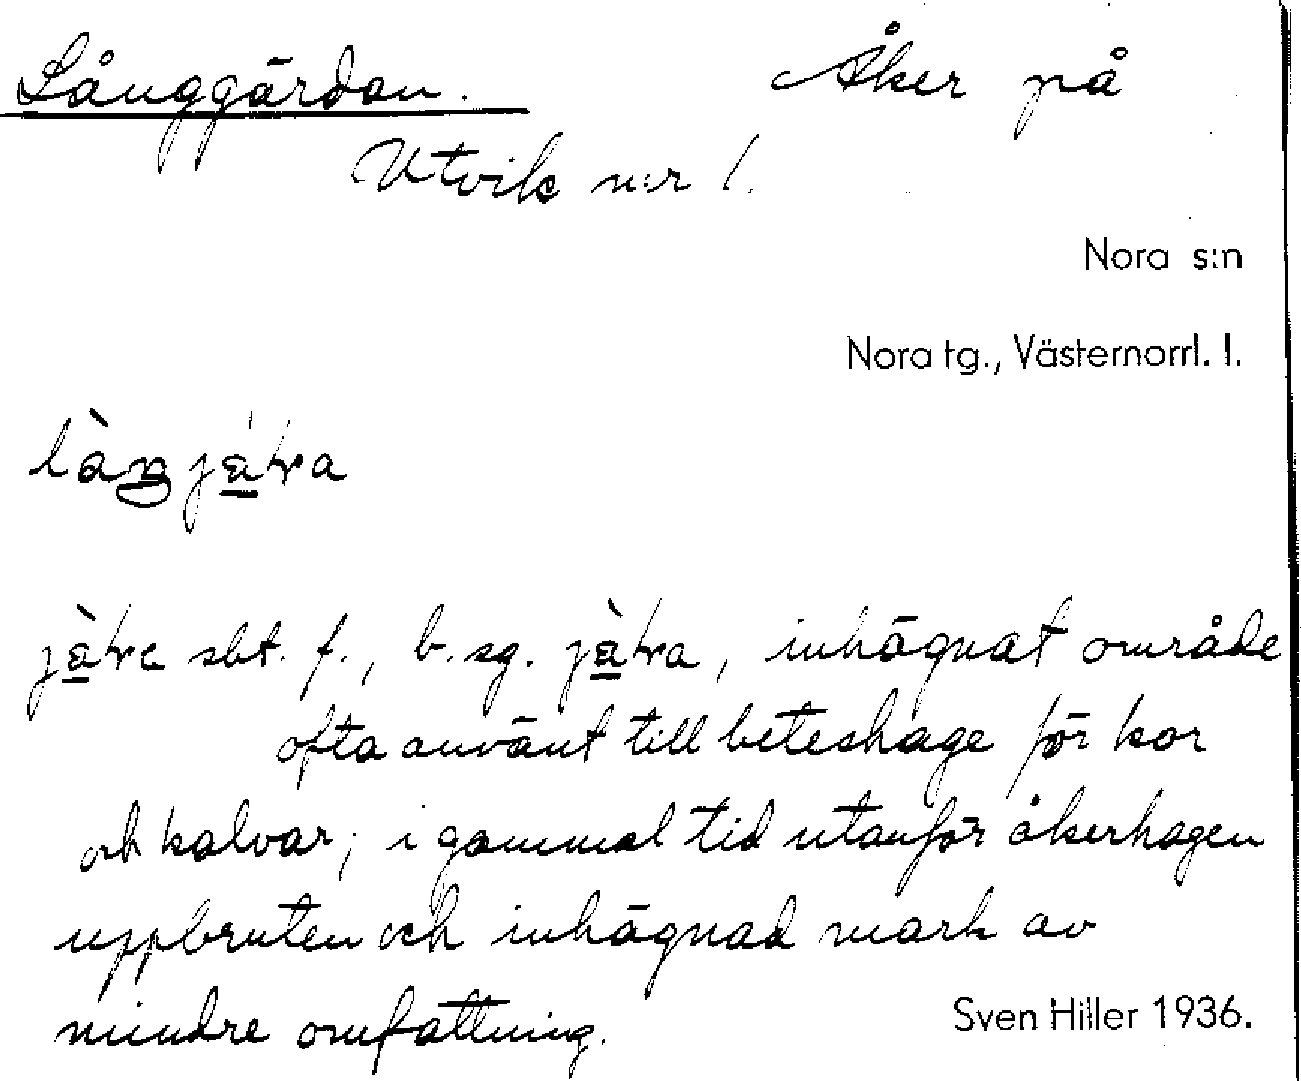 Långgärdan. Åker på
Utvik n:r 1.
Nora s:n
Nora tg., Västernorrl. l.
sbt. f., b. sg. , inhägnat område
ofta använt till beteshage för kor
och kalvar; i gammal tid utanför åkerhagen
uppbruten och inhägnad mark av
mindre omfattning.
Sven Hiller 1936.